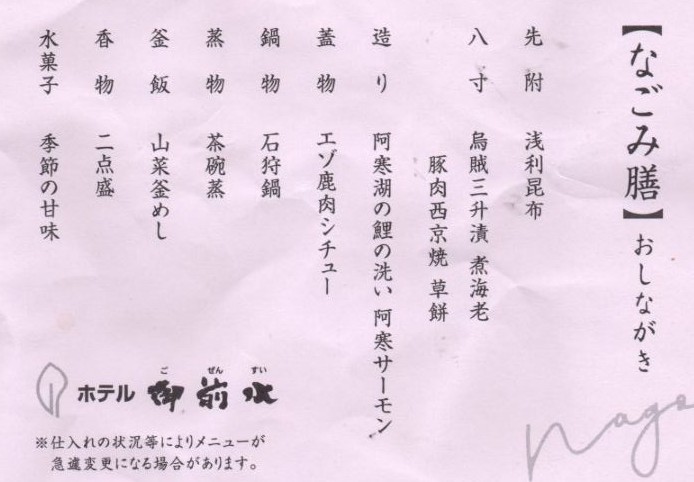 【なごみ膳】おしながき
先附 浅利昆布
八寸 烏賊三升漬 煮海老
豚肉西京焼 草餅
造り 阿寒湖の鯉の洗い 阿寒サーモン
蓋物 エゾ鹿肉シチュー
鍋物 石狩鍋
蒸物 茶碗蒸
釜飯 山菜釜めし
香物 二点盛
水菓子 季節の甘味
ごぜんすい
ホテル御前水
※仕入れの状況等によりメニューが
急遽変更になる場合があります。
Nago